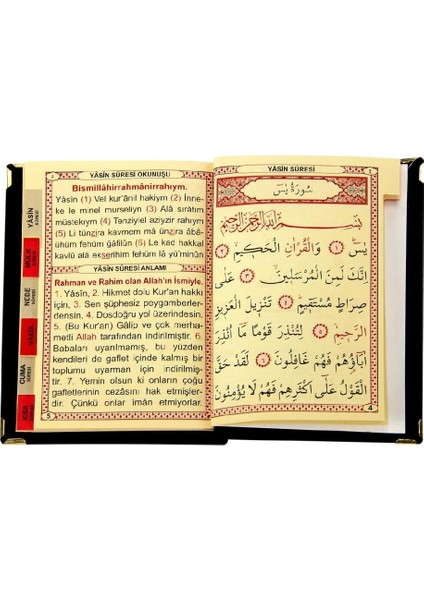 YÂSİN SÛRESİ OKUNUŞU
Bismillâhirrahmânirrahıym.
Yâsîn (1) Vel kur'ânil hakiym (2) İnne-
ke le minel murseliyn (3) Alâ sırâtım
müstekıym (4) Tenziylel aziyzir rahıym
(5) Li tünzira kavmom mâ ünzira âbâ-
ühüm fehüm gâfilûn (6) Le kad hakkal
kavlü alâ ekserihim fehüm lâ yü'minûn
YÂSİN SÛRESİ ANLAMI
Rahman ve Rahim olan Allah'ın İsmiyle.
1. Yâsîn, 2. Hikmet dolu Kur'an hakkı
için. 3. Sen şüphesiz peygamberler-
densin. 4. Dosdoğru yol üzerindesin.
5. (Bu Kur'an) Gâlip ve çok merha-
metli Allah tarafından indirilmiştir. 6.
Babaları uyarılmamış, bu yüzden
kendileri de gaflet içinde kalmış bir
toplumu uyarman için indirilmiş-
tir. 7. Yemin olsun ki onların çoğu
gafletlerinin cezasını hak etmişler-
dir. Çünkü onlar iman etmiyorlar.
5
YÂSİN
MÜLK
NEBE
VAKIA
CUMA
YÂSİN SÛRESİ
سُورَةُ يٰسٓ
بِسْمِ اللّٰهِ الرَّحْمٰنِ الرَّحِيمِ
يٰسٓ ﴿١﴾ وَالْقُرْاٰنِ الْحَكِيمِ ﴿٢﴾
اِنَّكَ لَمِنَ الْمُرْسَلِينَ ﴿٣﴾ عَلٰى
صِرَاطٍ مُسْتَقِيمٍ ﴿٤﴾ تَنْزِيلَ الْعَزِيزِ
الرَّحِيمِ ﴿٥﴾ لِتُنْذِرَ قَوْمًا مَا اُنْذِرَ
اٰبَاؤُهُمْ فَهُمْ غَافِلُونَ ﴿٦﴾ لَقَدْ حَقَّ
الْقَوْلُ عَلٰٓى اَكْثَرِهِمْ فَهُمْ لَا يُؤْمِنُونَ
4